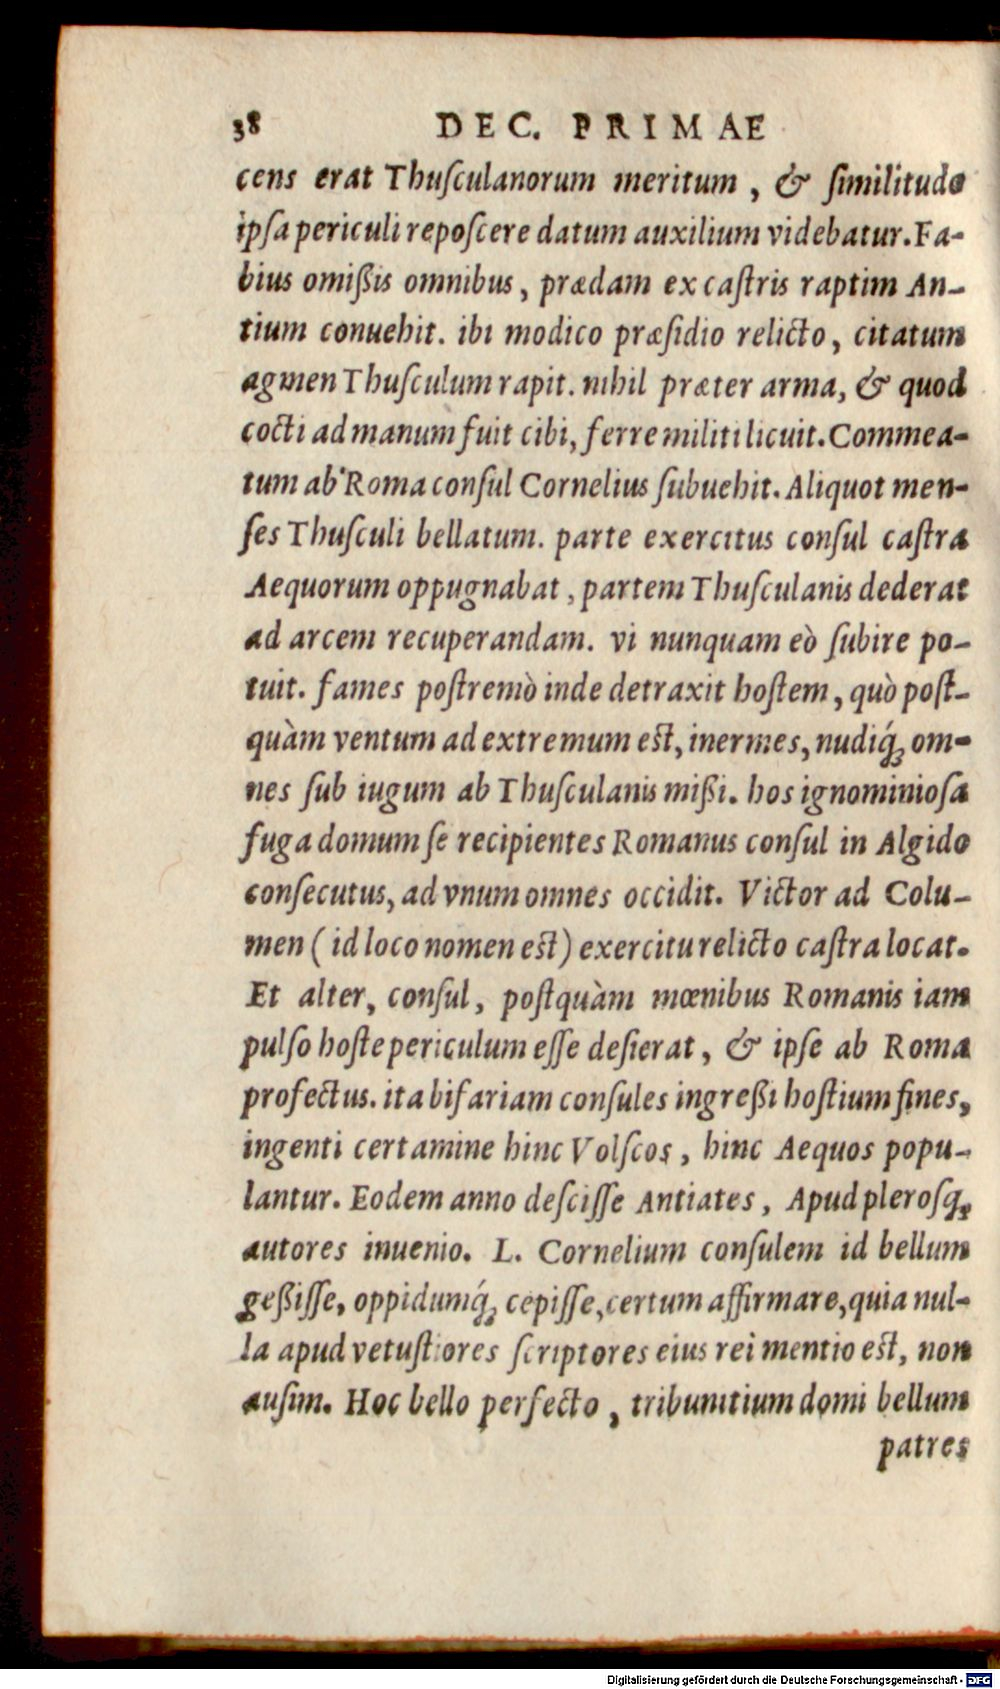 38 DEC. PRIMAE
cens erat Thuſculanorum meritum, & ſimilitudo
ipſa periculi repoſcere datum auxilium videbatur. Fa-
bius omißis omnibus, prædam ex caſtris raptim An-
tium conuehit. ibi modico præſidio relicto, citatum
agmen Thuſculum rapit. nihil præter arma, & quod
cocti ad manum fuit cibi, ferre militi licuit. Commea-
tum ab Roma conſul Cornelius ſubuehit. Aliquot men-
ſes Thuſculi bellatum. parte exercitus conſul caſtra
Aequorum oppugnabat, partem Thuſculanis dederat
ad arcem recuperandam. vi nunquam eò ſubire po-
tuit. fames poſtremò inde detraxit hoſtem, quò poſt-
quàm ventum ad extremum eſt, inermes, nudiq́ꝫ om-
nes ſub iugum ab Thuſculanis mißi. hos ignominioſa
fuga domum ſe recipientes Romanus conſul in Algido
conſecutus, ad vnum omnes occidit. Victor ad Colu-
men (id loco nomen eſt) exercitu relicto caſtra locat.
Et alter, conſul, poſtquàm mœnibus Romanis iam
pulſo hoſte periculum eſſe deſierat, & ipſe ab Roma
profectus. ita bifariam conſules ingreßi hoſtium fines,
ingenti certamine hinc Volſcos, hinc Aequos popu-
lantur. Eodem anno deſciſſe Antiates, Apud pleroſqꝫ
autores inuenio. L. Cornelium conſulem id bellum
geßiſſe, oppidumq́ꝫ cepiſſe, certum affirmare, quia nul-
la apud vetuſtiores ſcriptores eius rei mentio eſt, non
auſim. Hoc bello perfecto, tribunitium domi bellum
patres
Digitalisierung gefördert durch die Deutsche Forschungsgemeinschaft - DFG